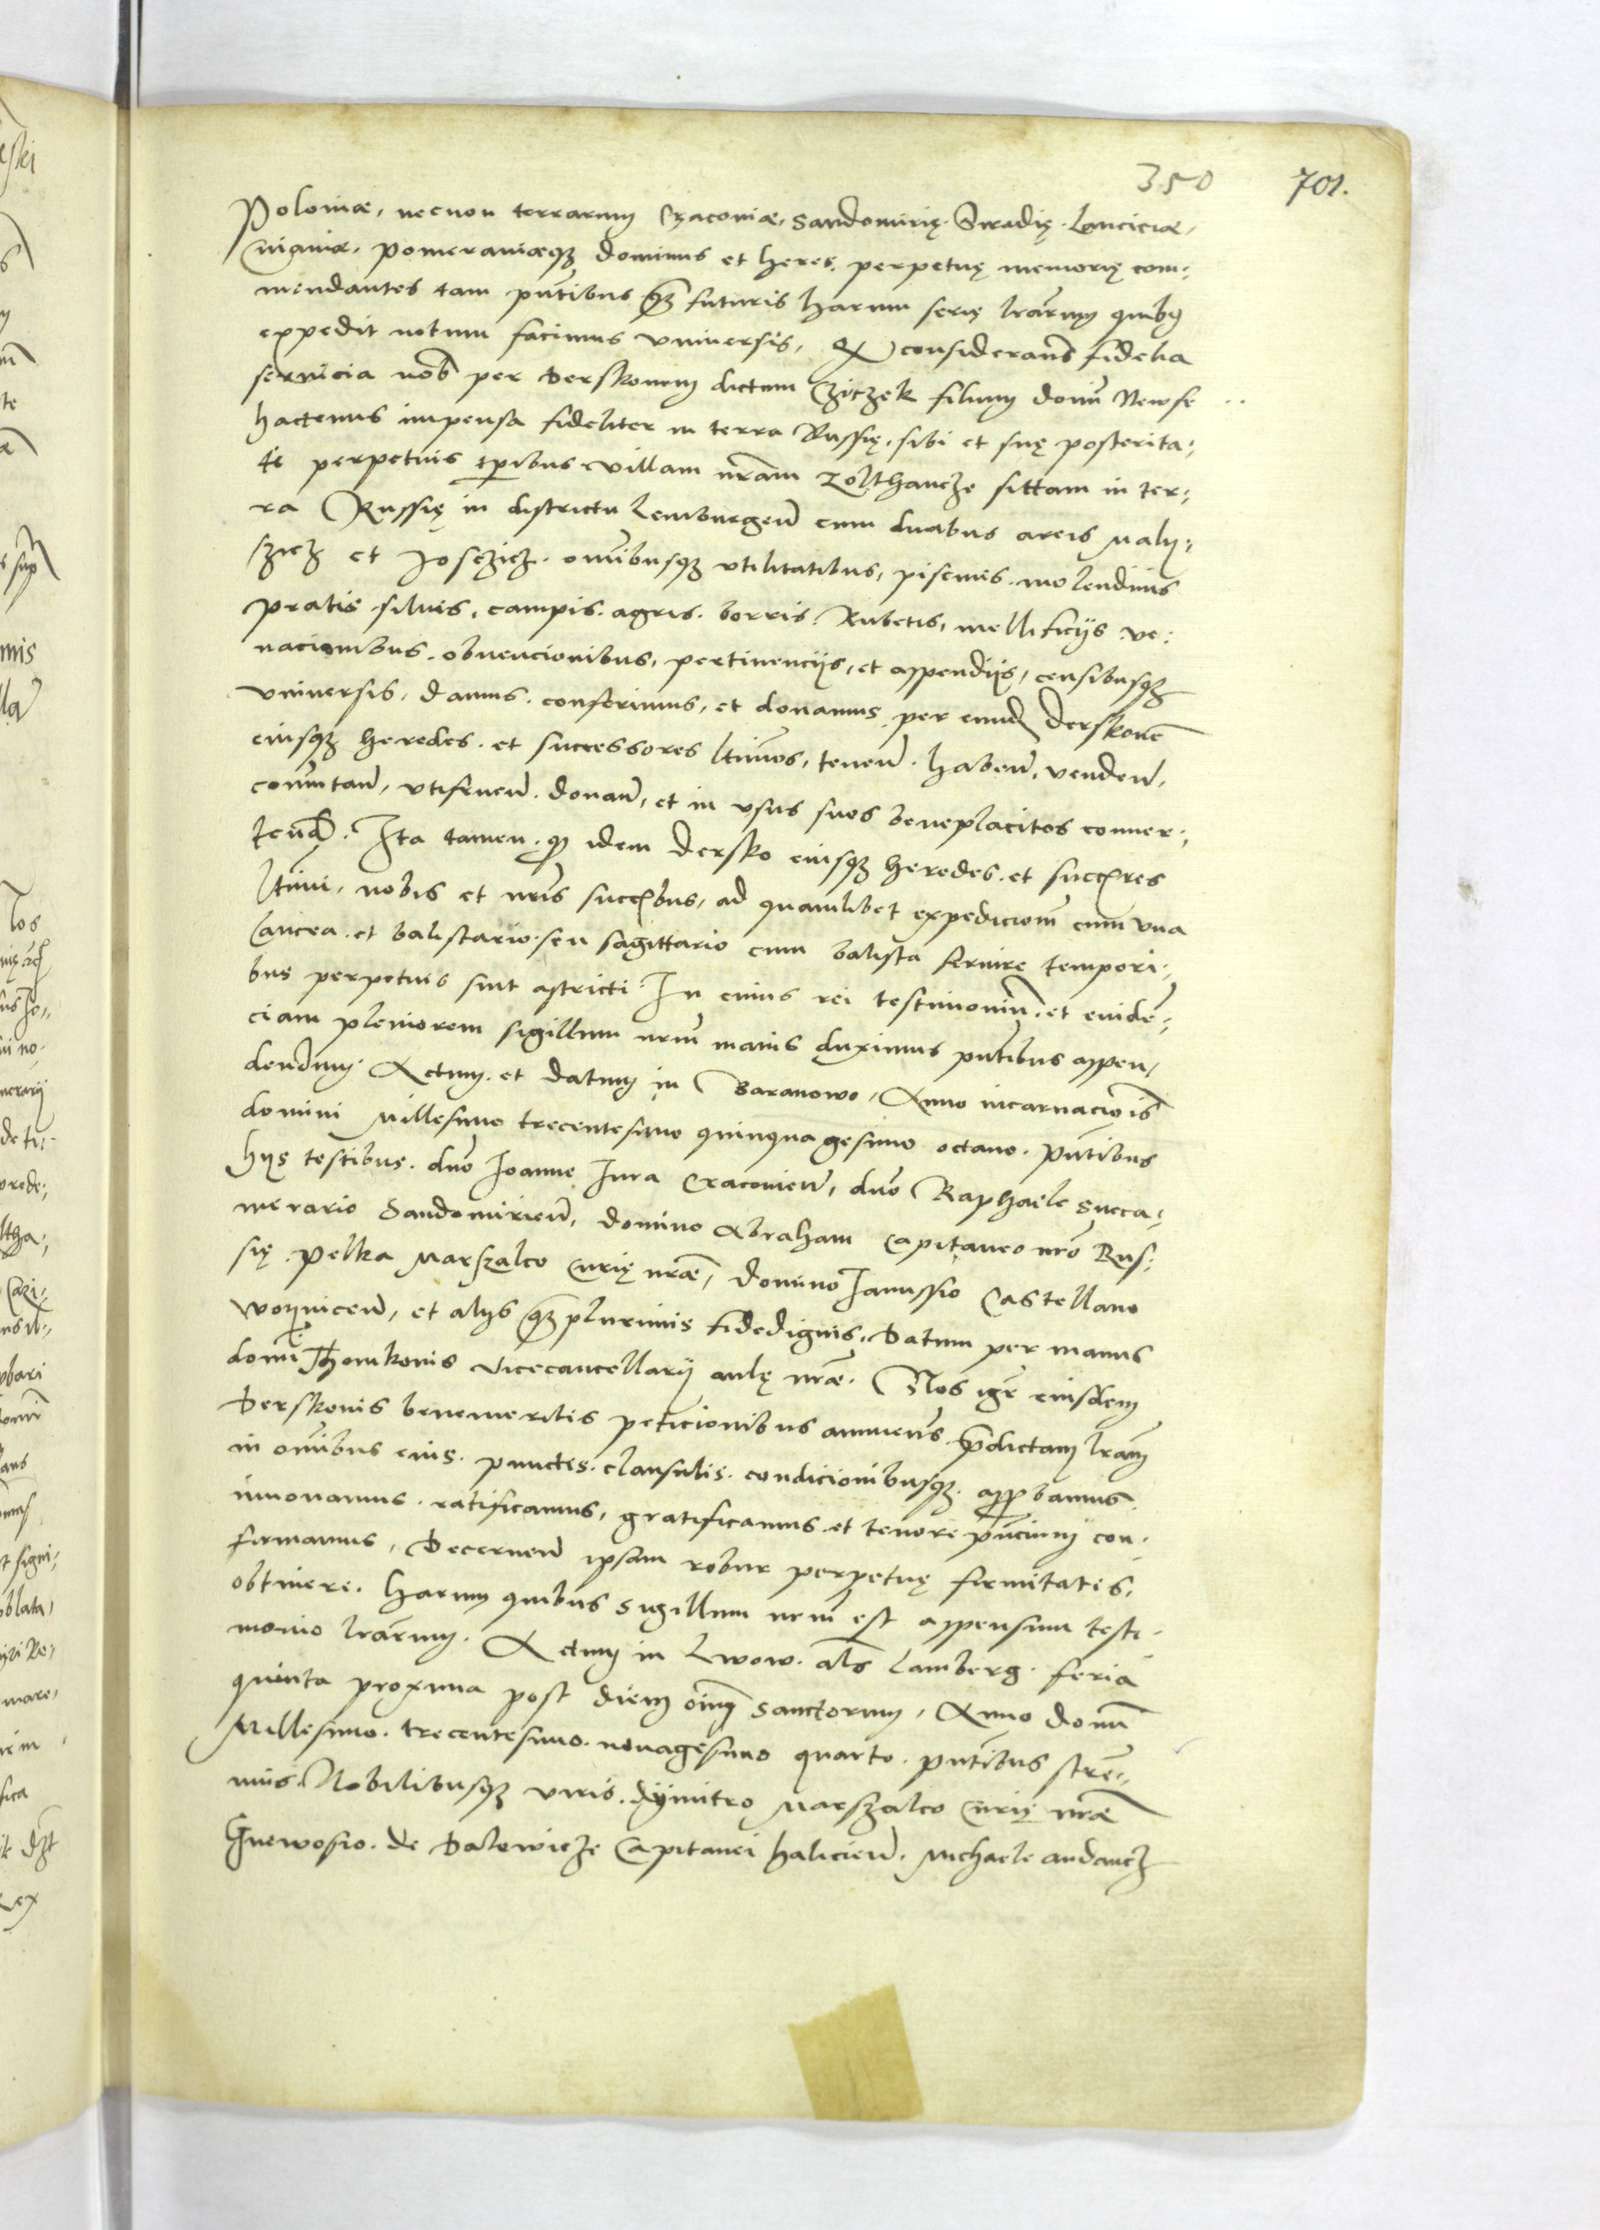 350 701.
Poloniæ, necnon terrarum Craconiæ, Sandomirię. Siradię. Lanciciæ,
Cuiauiæ, Pomeraniæq3 dominus et heres, perpetuę memorię com:
mendantes tam pntibus q3 futuris harum serię lrarum quibus
expedit notum facimus vniuersis, Q considerans fidelia
seruicia nob per Derskonem dictum Cziczek filium domi Newse
hactenus impensa fideliter in terra Russię, sibi et suę posterita:
ti perpetuis tpribus villam nram Zolthancze sittam in ter:
ra Russię in districtu Lemburgen cum duabus areis Maly:
szicz et Josczicz. omnibusq3 vtilitatibus, piscinis. molendinis
pratis siluis, campis. agris. borris. Rubetis, mellificijs ve:
nacionibus. obuencionibus, pertinencijs, et appendijs, censibusq3
vniuersis, damus. conferimus, et donamus per eund Derskone
eiusq3 heredes. et successores ltimos, tenen. haben, venden,
comutan, vtifruen. donan, et in vsus suos beneplacitos conuer:
tend. Ita tamen. q idem Dersko eiusq3 heredes. et succres
ltimi, nobis et nris succbus, ad quamlibet expedicionem cum vna
lancea. et balistario. seu sagittario cum balista seruire tempori:
bus perpetuis sint astricti. In cuius rei testimonium. et euiden:
ciam pleniorem sigillum nrum maius duximus pntibus appen,
dendum. Actum. et datum in Baranowo, Anno incarnacionis
domini Millesimo trecentesimo quinquagesimo octauo. Pntibus
hijs testibus. dno Joanne Jura Cracouien, dno Raphaele succa:
merario Sandomirien, domino Abraham Capitaneo nro Rus:
się. Pelka Marszalco Curię nræ, Domino Janussio Castellano
Woynicen, et alijs q3plurimis fidedignis. Datum per manus
domi Thomkonis vicecancellarij aulę nræ. Nos igr eiusdem
Derskonis benemeritis peticionibus annuens prdictam lram
in omnibus eius. punctis. clausulis. condicionibusq3. approbamus.
innouamus. ratificamus, gratificamus et tenore pncium con.
firmamus, Decernen ipsam robur perpetuę firmitatis,
obtinere. Harum quibus sigillum nrum est appensum testi.
monio lrarum. Actum in Lwow. als Lamberg. feria
quinta proxima post diem oium sanctorum, Anno domi
Millesimo. trecentesimo. nonagesimo quarto. pntibus stre:
nuis. Nobilibusq3 viris. Dymitro Marszalco Curię nræ
Gnewosio. de Dalewicze Capitanei Halicien. Michaele andancz